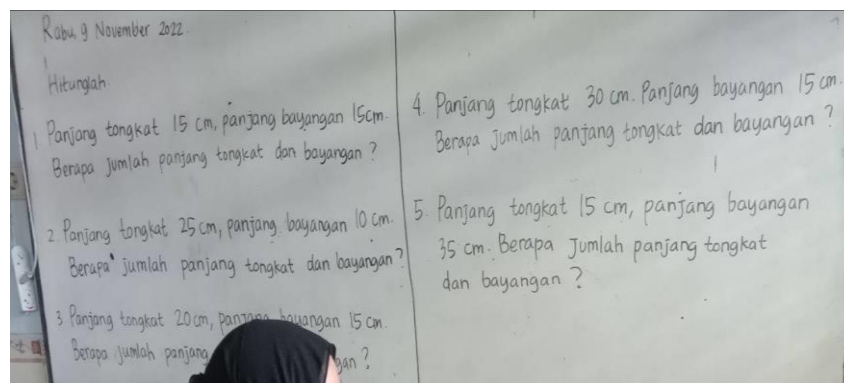 Rabu, 9 November 2022
Hitunglah.
1 Panjang tongkat 15 cm, panjang bayangan 15cm.
Berapa jumlah panjang tongkat dan bayangan?
2. Panjang tongkat 25 cm, panjang bayangan 10 cm.
Berapa jumlah panjang tongkat dan bayangan?
3. Panjang tongkat 20 cm, panjang bayangan 15 cm.
Berapa jumlah panjang
4. Panjang tongkat 30 cm. Panjang bayangan 15 cm.
Berapa jumlah panjang tongkat dan bayangan?
5. Panjang tongkat 15 cm, panjang bayangan
35 cm. Berapa Jumlah panjang tongkat
dan bayangan?